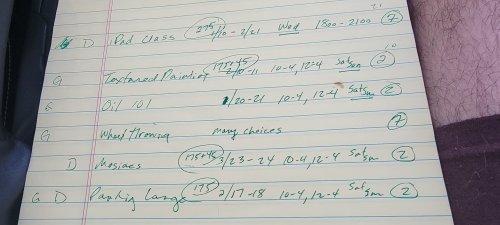 D iPad class 275 1/10 - 2/21 Wed 1800 - 2100 7
G Textured Painting 175+45 2/10-11 10-4, 12-4 Sat Sun 2
G Oil 101 1/20-21 10-4, 12-4 Sat Sun 2
G Wheel throwing many choices 7
D Mosiacs 175+45 3/23-24 10-4, 12-4 Sat Sun 2
G D Painting Large 175 2/17-18 10-4, 12-4 Sat Sun 2